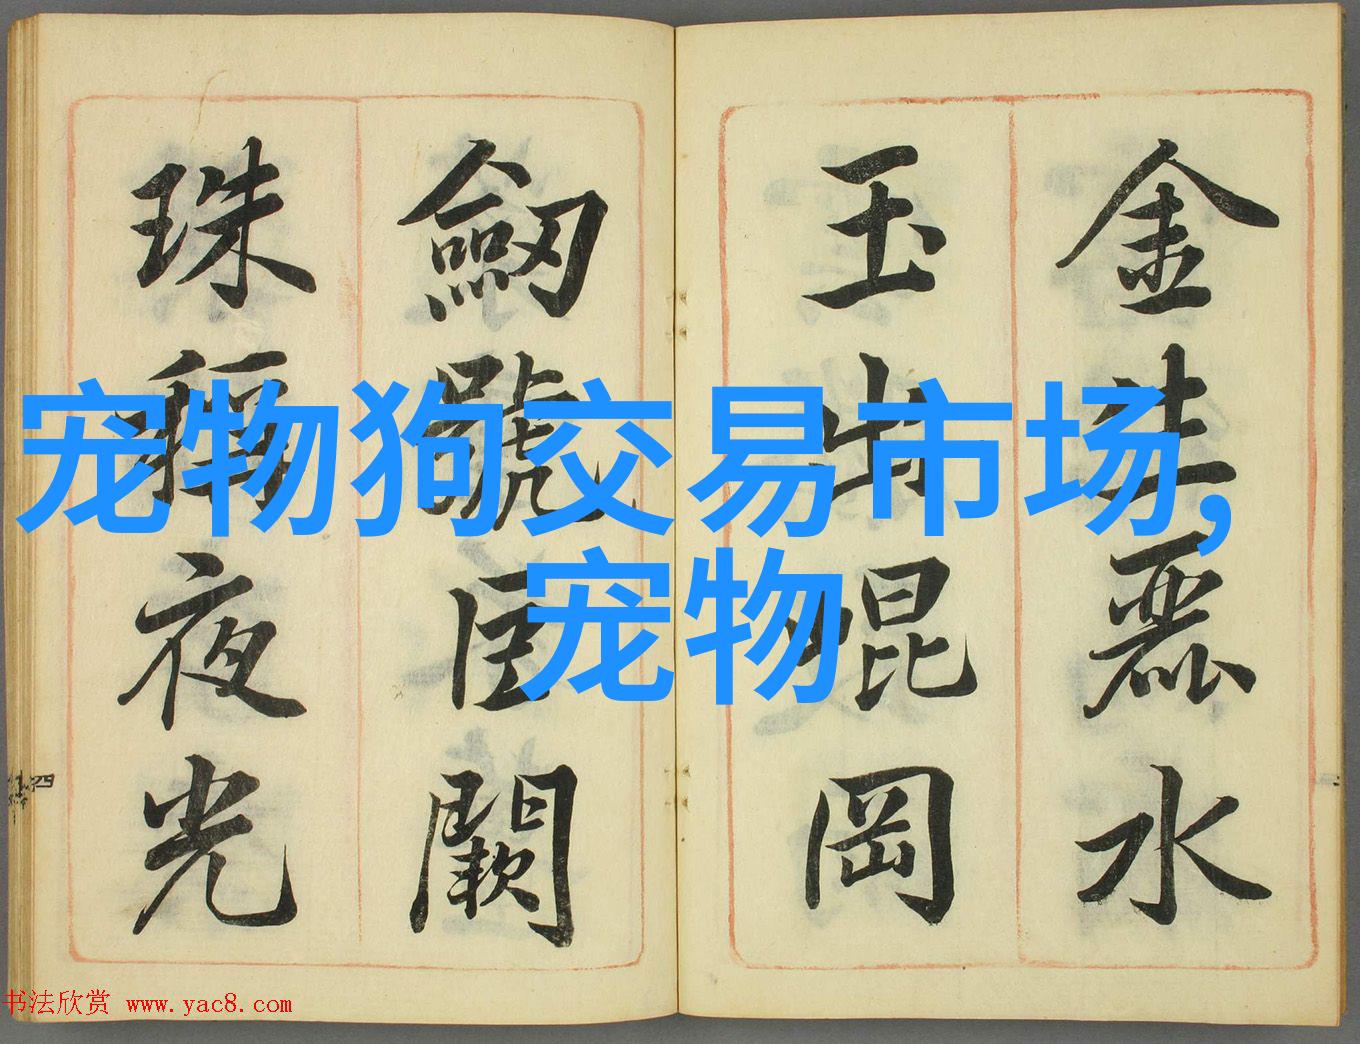 金生麗水
玉出崐岡
劒號巨闕
珠稱夜光
宠物狗交易市场,
宠物
四
书法欣赏 www.yac8.com